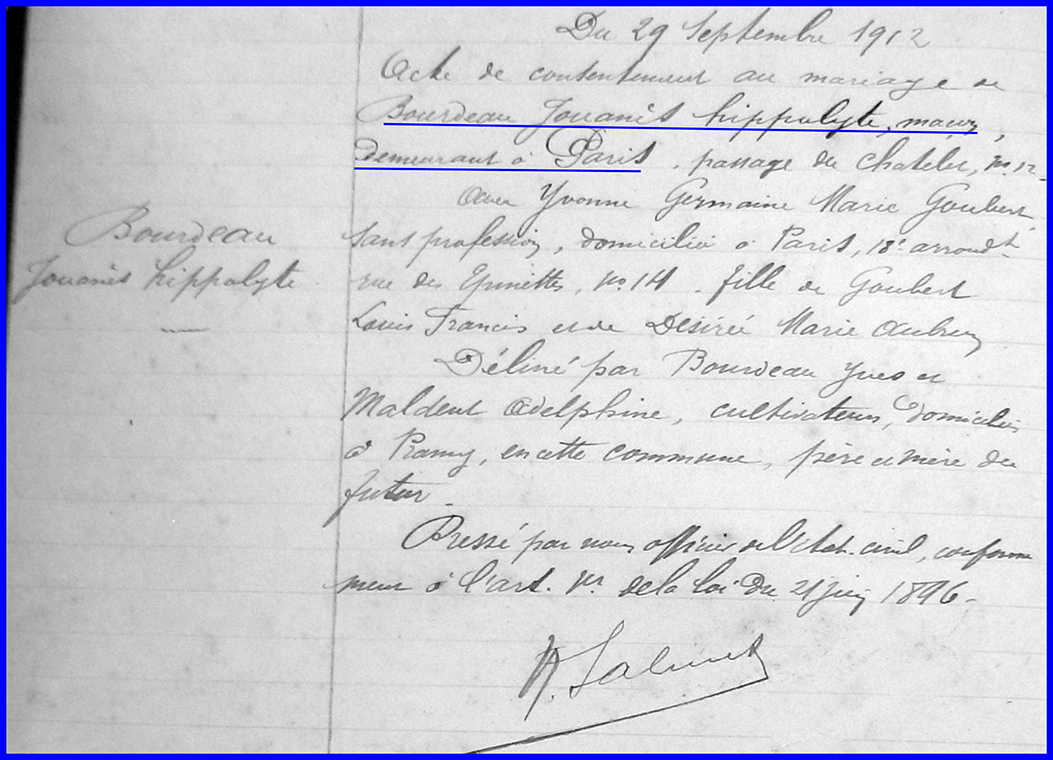 Du 29 Septembre 1912
Acte de contentement au mariage de
Bourdeau Jouanès hippolyte, maçon,
Demeurant à Paris, passage du Chatelet, No. 12
Bourdeau
Jouanès hippolyte
avec Yvonne Germaine Marie Goubert
Sans profession, domiciliée à Paris, 18e arrondt.
rue des Epinettes, No. 14, fille de Goubert
Louis Francis et de Désirée Marie Aubrey
Délivré par Bourdeau Yves et
Maldent Adelphine, cultivateurs, domiciliés
à , en cette commune, père et mère du
futur.
Dressé par nous officier de l'état-civil, conformé
ment à l'art. 1er de la loi du 21 juin 1896.